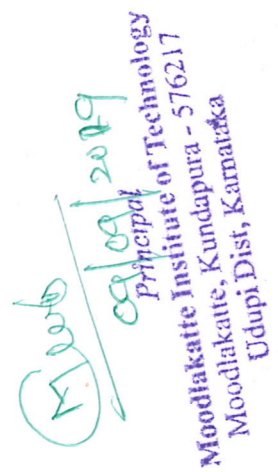 09/09/2019
Principal
Moodlakatte Institute of Technology
Moodlakatte, Kundapura - 576217
Udupi Dist, Karnataka